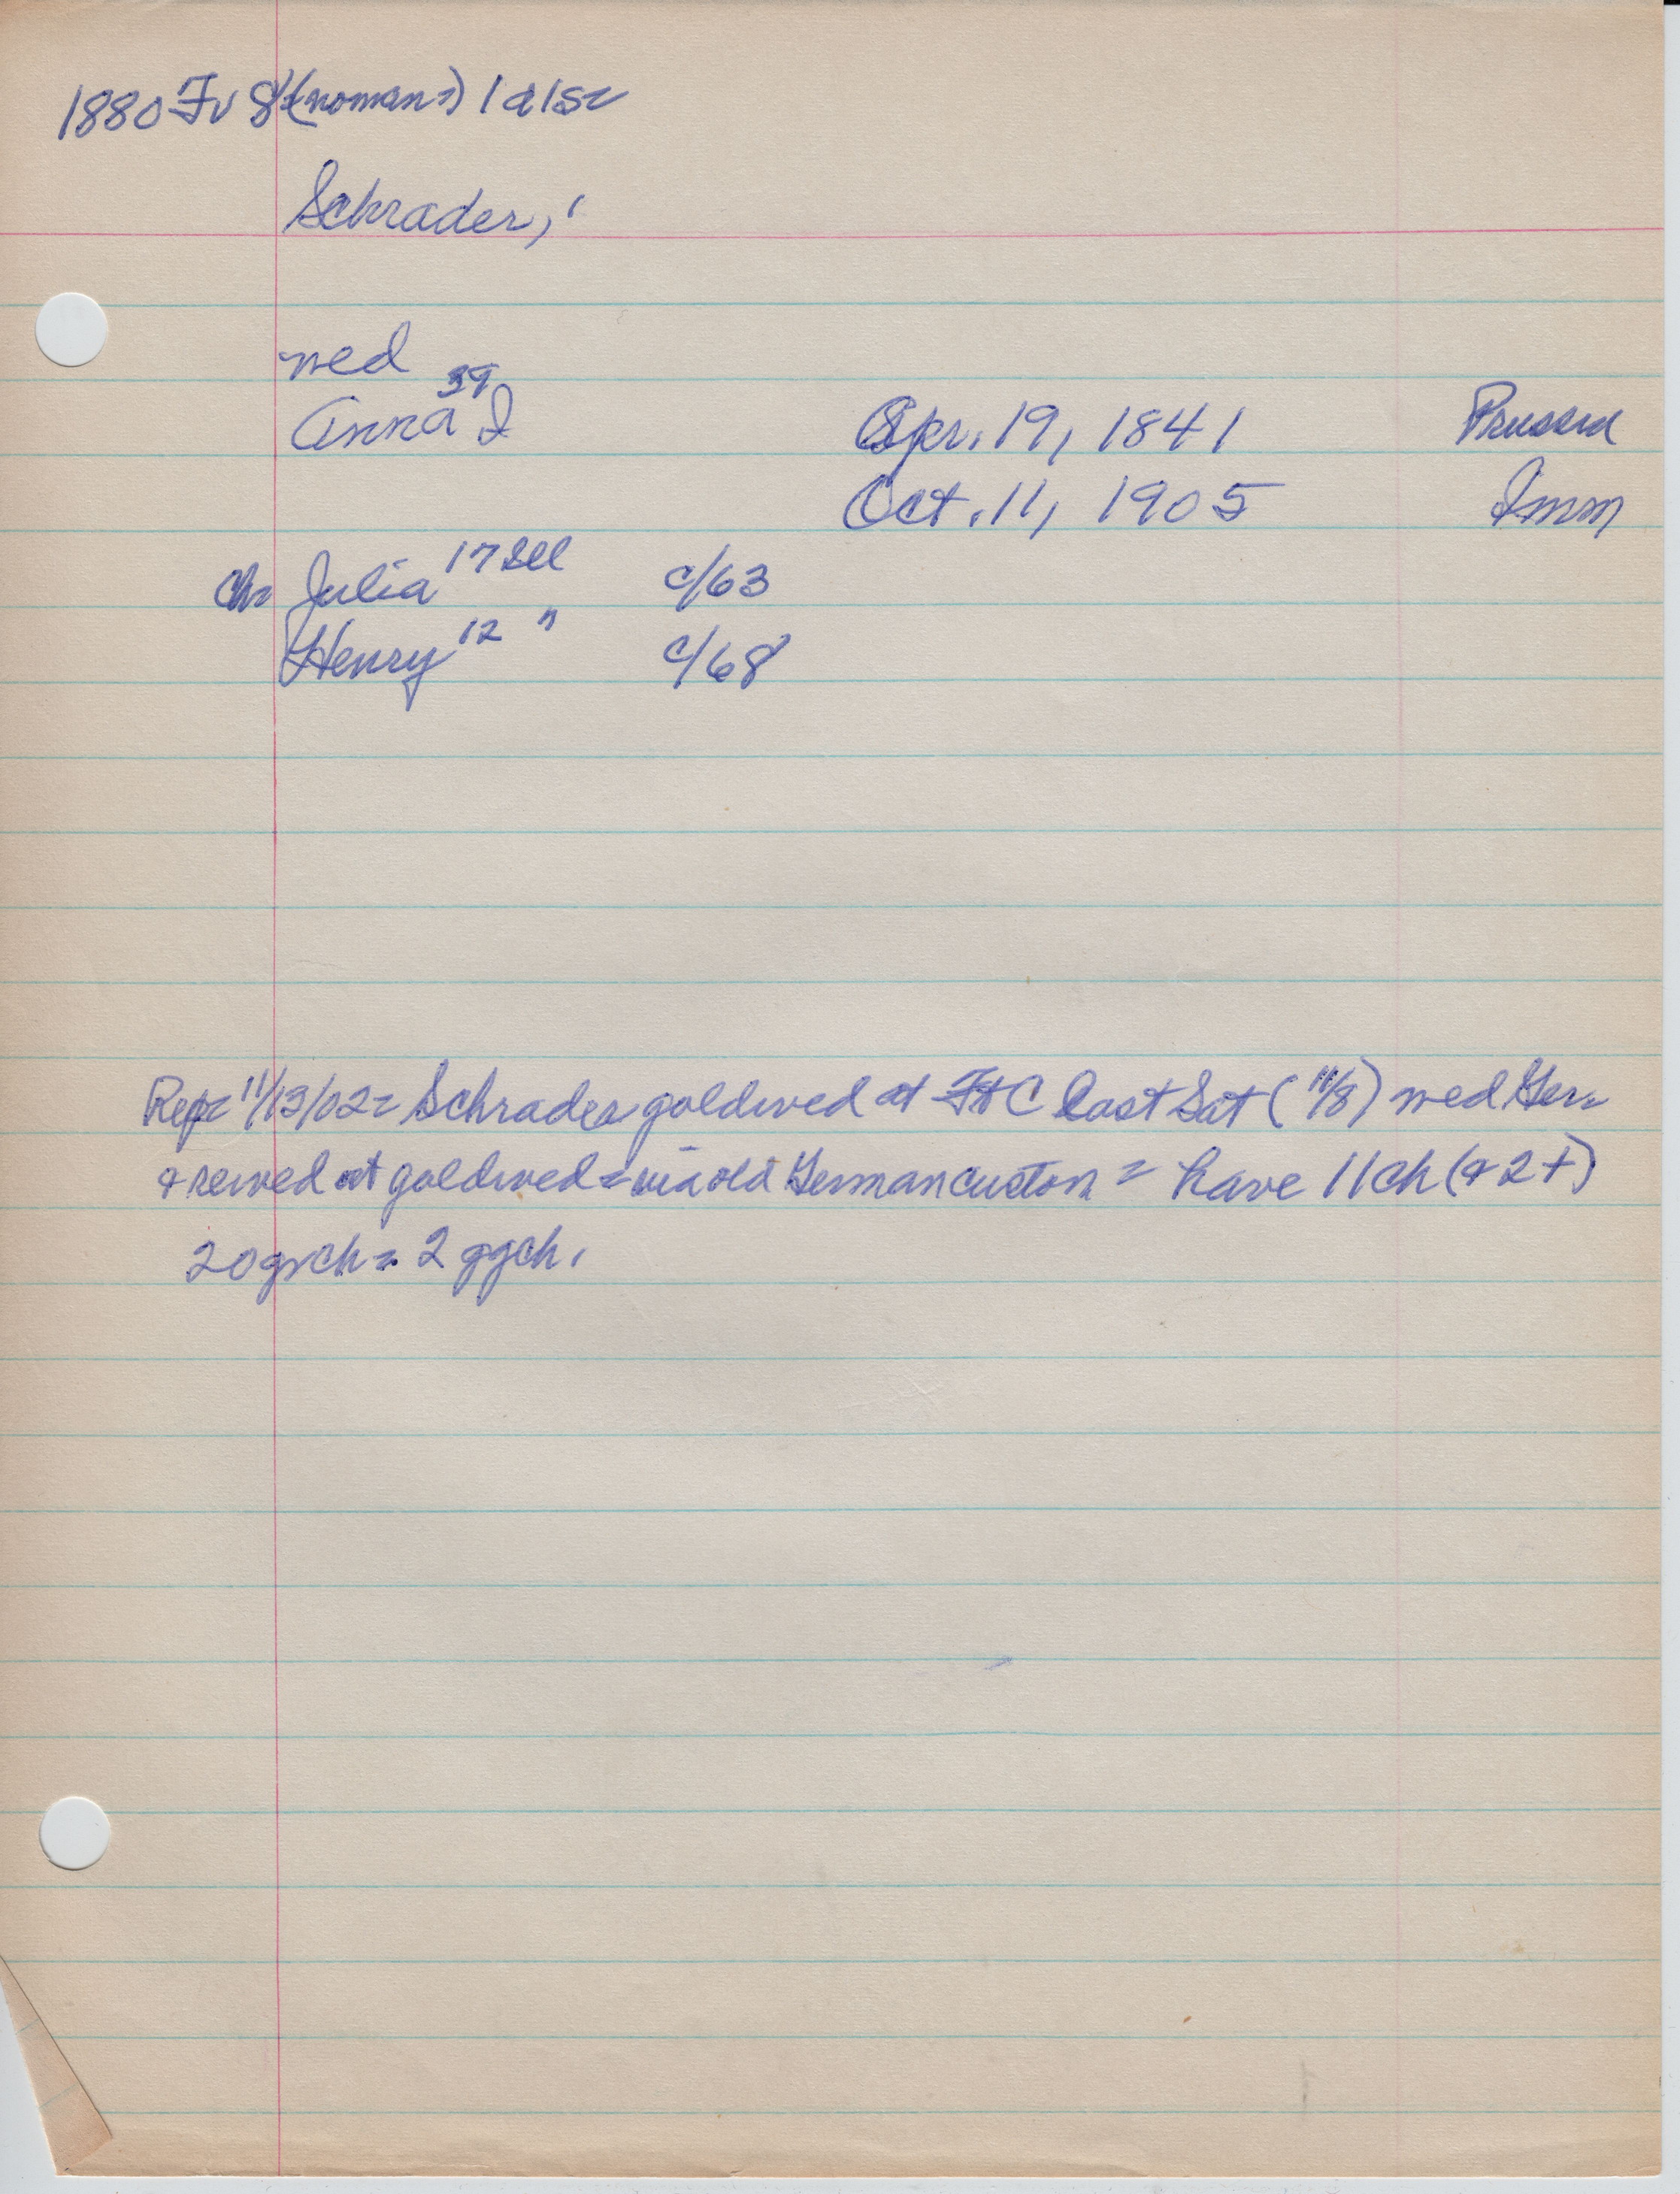 1880 Fv 8 (no man=) 1 d 1 s=
Schrader,
wed
Anna 39 I Apr. 19, 1841 Prussia
Oct. 11, 1905 Imm
Ch= Julia 17 Ill c/63
Henry 12 " c/68
Rep= 11/13/02= Schrader goldwed at FtC last Sat (11/8) wed Ger=
& rewed at goldwed = via old German custom = have 11 ch (& 2 +)
20 grch = 2 ggch.